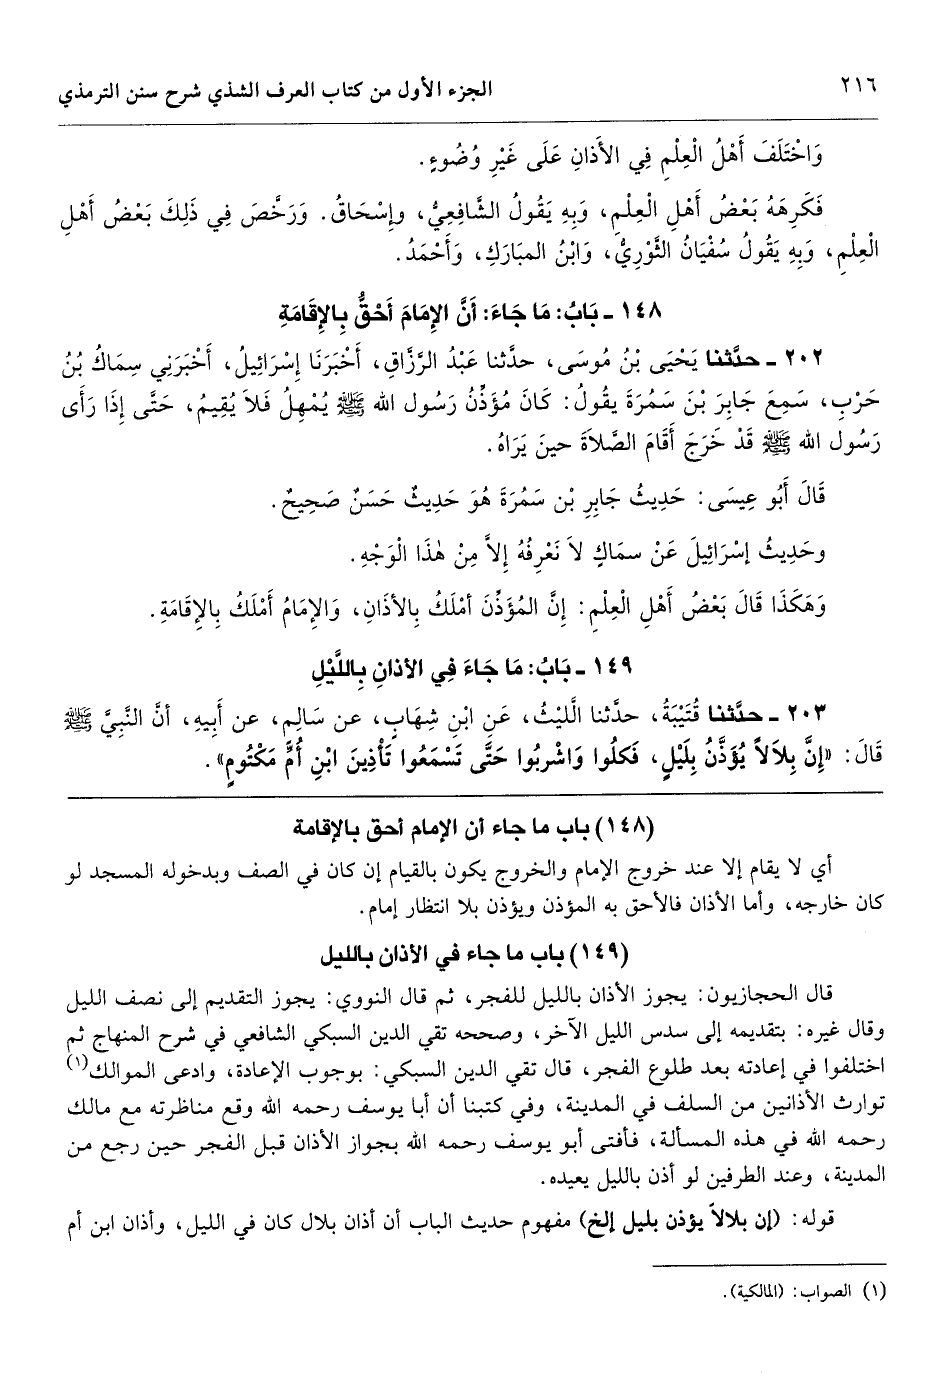 ٢١٦ الجزء الأول من كتاب العرف الشذي شرح سنن الترمذي
وَاخْتَلَفَ أَهْلُ الْعِلْمِ فِي الأَذَانِ عَلَى غَيْرِ وُضُوءٍ.
فَكَرِهَهُ بَعْضُ أَهْلِ الْعِلْمِ، وَبِهِ يَقُولُ الشَّافِعِيُّ، وإِسْحَاقُ. وَرَخَّصَ فِي ذَلِكَ بَعْضُ أَهْلِ
الْعِلْمِ، وَبِهِ يَقُولُ سُفْيَانُ الثَّوْرِيُّ، وَابْنُ المبَارَكِ، وَأَحْمَدُ.
١٤٨ ـ بَابُ: مَا جَاءَ: أَنَّ الإِمَامَ أَحْقُّ بِالإِقَامَةِ
٢٠٢ ـ حدَّثنا يَحْيَى بْنُ مُوسَى، حدَّثنا عَبْدُ الرَّزَّاقِ، أَخْبَرَنَا إِسْرَائِيلُ، أَخْبَرَنِي سِمَاكُ بْنُ
حَرْبٍ، سَمِعَ جَابِرَ بْنَ سَمُرَةَ يقُولُ: كَانَ مُؤَذِّنُ رَسُول الله ﷺ يُمْهِلُ فَلاَ يُقِيمُ، حَتَّى إِذَا رَأَى
رَسُول الله ﷺ قَدْ خَرَجَ أَقَامَ الصَّلاَةَ حينَ يَرَاهُ.
قَالَ أَبُو عِيسَى: حَدِيثُ جَابِرِ بْن سَمُرَةَ هُوَ حَدِيثٌ حَسَنٌ صَحِيحٌ.
وحَدِيثُ إِسْرَائِيلَ عَنْ سماكٍ لاَ نَعْرِفُهُ إِلاَّ مِنْ هٰذَا الْوَجْهِ.
وَهَكَذَا قَالَ بَعْضُ أَهْلِ الْعِلْمِ: إِنَّ المُؤَذِّنَ أمْلَكُ بِالأذَانِ، وَالإِمَامُ أَمْلَكُ بِالإِقَامَةِ.
١٤٩ ـ بَابُ: مَا جَاءَ فِي الأذَانِ بِاللَّيْلِ
٢٠٣ ـ حدَّثنا قُتَيْبَةُ، حدَّثنا الَّليْثُ، عَنِ ابْنِ شِهَابٍ، عن سَالِمٍ، عن أَبِيهِ، أنَّ النَّبِيَّ ﷺ
قَالَ: «إِنَّ بِلاَلاً يُؤَذِّنُ بِلَيْلٍ، فَكُلُوا وَاشْرَبُوا حَتَّى تَسْمَعُوا تَأْذِينَ ابْنِ أُمِّ مَكْتُومٍ».
(١٤٨) باب ما جاء أن الإمام أحق بالإقامة
أي لا يقام إلا عند خروج الإمام والخروج يكون بالقيام إن كان في الصف وبدخوله المسجد لو
كان خارجه، وأما الأذان فالأحق به المؤذن ويؤذن بلا انتظار إمام.
(١٤٩) باب ما جاء في الأذان بالليل
قال الحجازيون: يجوز الأذان بالليل للفجر، ثم قال النووي: يجوز التقديم إلى نصف الليل
وقال غيره: بتقديمه إلى سدس الليل الآخر، وصححه تقي الدين السبكي الشافعي في شرح المنهاج ثم
اختلفوا في إعادته بعد طلوع الفجر، قال تقي الدين السبكي: بوجوب الإعادة، وادعى الموالك(١)
توارث الأذانين من السلف في المدينة، وفي كتبنا أن أبا يوسف رحمه الله وقع مناظرته مع مالك
رحمه الله في هذه المسألة، فأفتى أبو يوسف رحمه الله بجواز الأذان قبل الفجر حين رجع من
المدينة، وعند الطرفين لو أذن بالليل يعيده.
قوله: (إن بلالاً يؤذن بليل إلخ) مفهوم حديث الباب أن أذان بلال كان في الليل، وأذان ابن أم
(١) الصواب: (المالكية).